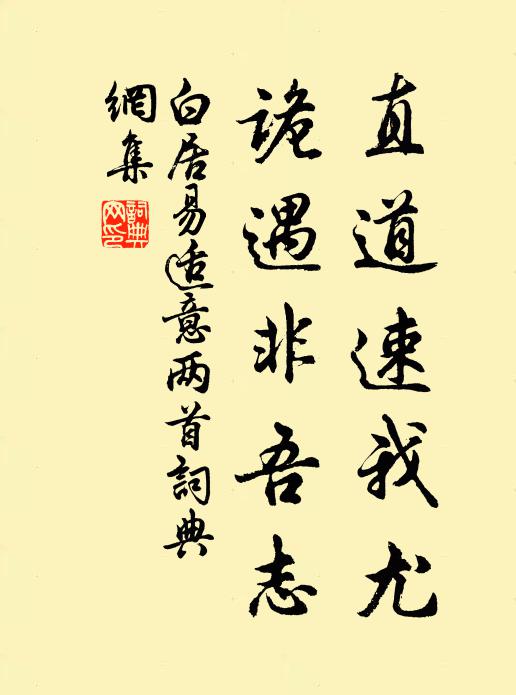 直道速我尤
詭遇非吾志
白居易适意两首詞典
網集
詞典
网印